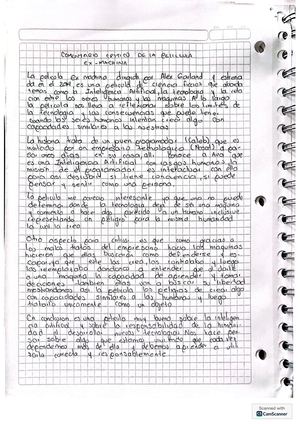 COMENTARIO CRITICO DE LA PELICULA
EX-MACHINA
La pelicula Ex machina dirigida por Alex Garland y estrena
da en el 2014, es una pelicula de ciencia ficcion que aborda
temas como la Inteligencia Artificial, la tecnologia y la rela
cion entre los seres humanos y las maquinas. A lo largo
la pelicula nos lleva a reflexionar sobre los limites de
la tecnologia y las consecuencias que puede tener
cuando los seres humanos intentan crear algo con
capacidades similares a las nuestras.
La historia trata de un joven programador (Caleb) que es
invitado por un empresario tecnologico (Nathan) a pasar
unos dias en su casa, alli conoce a Ava que
es una Inteligencia Artificial con rasgos humanos, la
mision de el programador es interactuar con ella
para asi descubrir si tiene conciencia, si puede
pensar y sentir como una persona.
La pelicula me parecio interesante ya que uno no puede
determinar donde la tecnologia deja de ser una maquina
y comienza a hacer algo parecido a un humano inclusive
representando un peligro para la misma humanidad
la cual lo creo
Otro aspecto para criticar es que como gracias a
los malos tratos del empresario hacia las maquinas
hicieron que ellas buscaran como defenderse y es-
capar ya que este las creo, las controlaba y luego
las reemplazaba dandonos a entender que al darle
a una maquina la capacidad de aprender y tomar
decisiones tambien ellas van a buscar su libertad
mostrandonos asi la pelicula los peligros de crear algo
con capacidades similares a las humanas y luego
tratarlo unicamente como un objeto
En conclusion es una pelicula muy buena sobre la inteligen
cia artificial y sobre la responsabilidad de la humani-
dad al desarrollar nuevas tecnologias. Nos hace pen
sar sobre algo que estamos viviendo que cada vez
dependemos mas de ella y debemos aprender a uti
lizarla correcta y responsablemente.
Scanned with
CamScanner